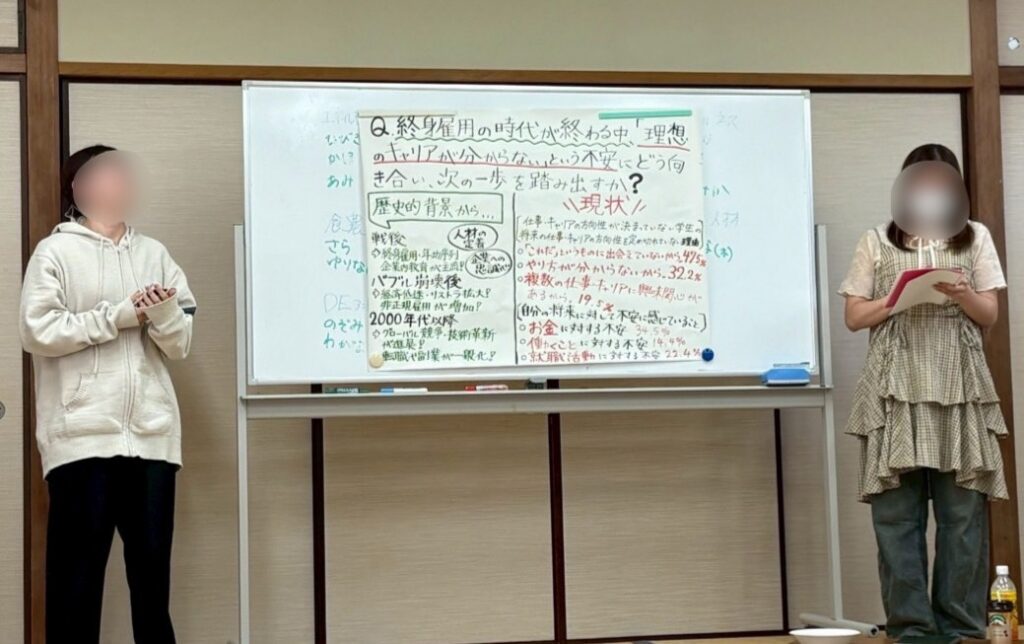 Q.終身雇用の時代が終わる中、「理想
のキャリアが分からない」という不安にどう向
き合い、次の一歩を踏み出すか?
歴史的背景から…
戦後
人材の
定着
◇終身雇用・年功序列
企業内教育が主流?
企業への
バブル崩壊後
◇経済低迷・リストラ拡大?
非正規雇用が増加?
2000年代以降
◇グローバル競争・技術革新
が進展?
転職や副業が一般化?
\\現状//
仕事・キャリアの方向性が決まっていない学生の
将来の仕事・キャリアの方向性を定め切れていない理由
○「これだ」というものに出会えていないから、47.5%
○やり方が分からないから、32.2%
○複数の仕事・キャリアに興味関心が
あるから、19.5%
[自分の将来に対して不安に感じていること]
○お金に対する不安 34.5%
○働くことに対する不安 14.4%
○就職活動に対する不安 22.4%
かほ
あみ
さら
ゆりな
DE
のぞみ
人材
(木)